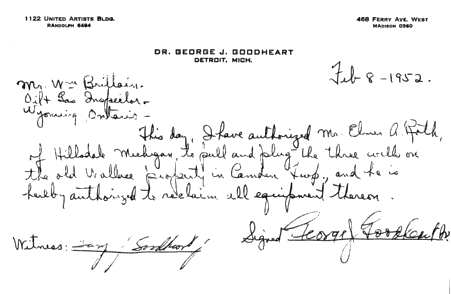 1122 UNITED ARTISTS BLDG.
RANDOLPH 5464
468 FERRY AVE. WEST
MADISON 0360
DR. GEORGE J. GOODHEART
DETROIT, MICH.
Feb 8 - 1952.
Mr. Wm Brittain -
Oil & Gas Inspector -
Wyoming, Ontario -
This day, I have authorized Mr. Elmer A. Roth,
of Hillsdale Michigan, to pull and plug the three wells on
the old Wallace property in Camden Twp., and he is
hereby authorized to reclaim all equipment thereon.
Witness: Goodheart
Signed George J Goodheart